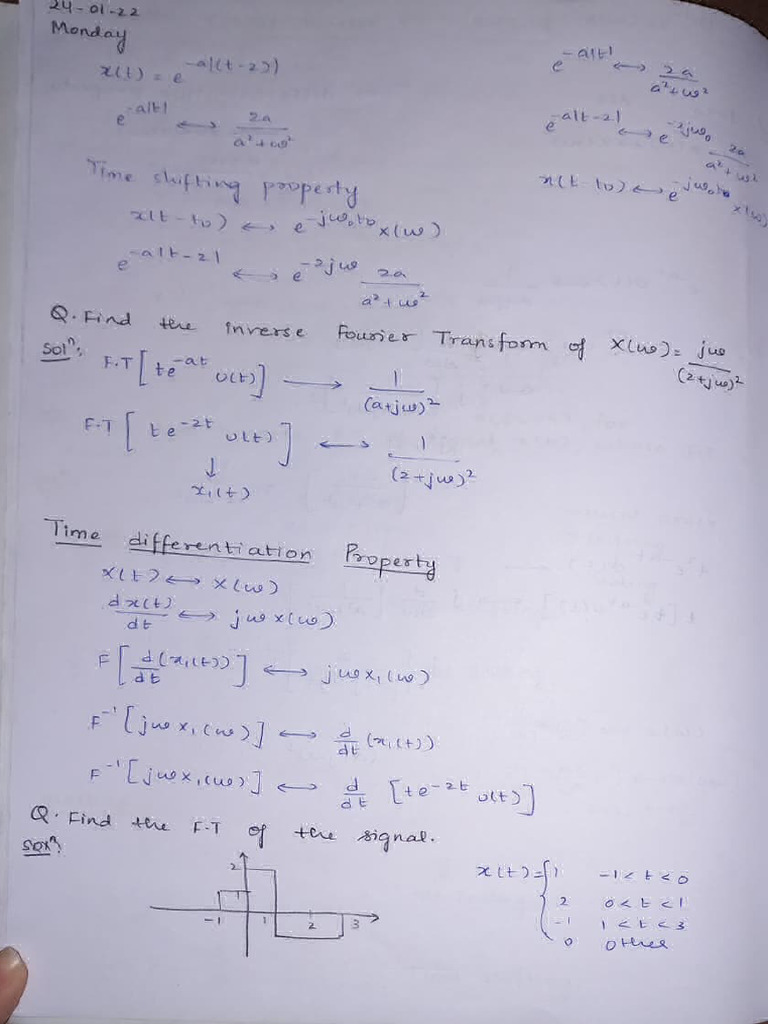 24-01-22
Monday
x(t) = e^{-a|(t-2)|}
e^{-a|t|} ↔ 2a/(a²+ω²)
e^{-a|t|} ↔ 2a/(a²+ω²)
e^{-a|t-2|} ↔ e^{-2jω₀} 2a/(a²+ω²)
x(t-t₀) ↔ e^{-jω₀t₀} x(ω)
Time shifting property
x(t-t₀) ↔ e^{-jω₀t₀} x(ω)
e^{-a|t-2|} ↔ e^{-2jω} 2a/(a²+ω²)
Q. Find the inverse Fourier Transform of X(ω) = jω/(2+jω)²
Solⁿ: F.T [te^{-at} u(t)] → 1/(a+jω)²
F.T [te^{-2t} u(t)] ↔ 1/(2+jω)²
↓
x₁(t)
Time differentiation Property
x(t) ↔ x(ω)
dx(t)/dt ↔ jω x(ω)
F [d/dt (x₁(t))] ↔ jω x₁(ω)
F⁻¹ [jω x₁(ω)] ↔ d/dt (x₁(t))
F⁻¹ [jω x₁(ω)] ↔ d/dt [te^{-2t} u(t)]
Q. Find the F.T of the signal.
Solⁿ:
2
1
-1 1 2 3
x(t) = { 1 -1<t<0
2 0<t<1
-1 1<t<3
0 other